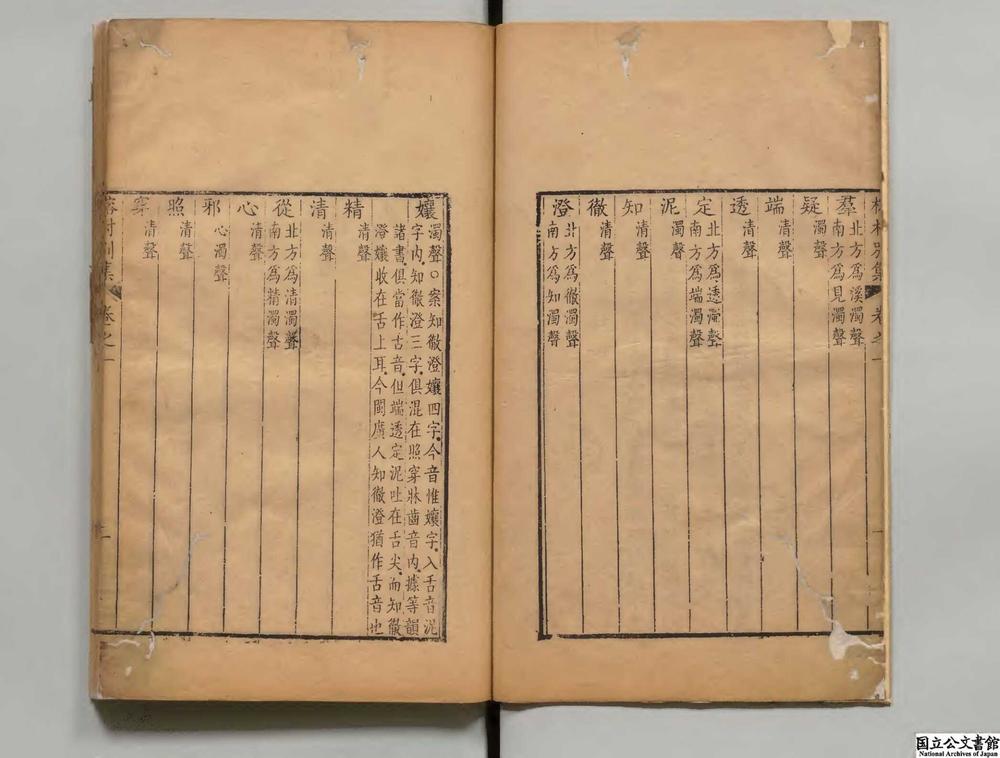 榕村別集 卷之一 一
羣
北方爲溪濁聲
南方爲見濁聲
疑
濁聲
端
清聲
透
清聲
定
北方爲透濁聲
南方爲端濁聲
泥
濁聲
知
清聲
徹
清聲
澄
北方爲徹濁聲
南方爲知濁聲
孃
濁聲○案知徹澄孃四字今音惟孃字入舌音泥
字內知徹澄三字俱混在照穿牀齒音內據等韻
諸書俱當作古音但端透定泥吐在舌尖而知徹
澄孃收在舌上耳今閩廣人知徹澄猶作舌音也
精
清聲
清
清聲
從
北方爲清濁聲
南方爲精濁聲
心
清聲
邪
心濁聲
照
清聲
穿
清聲
榕村別集 卷之一 二
国立公文書館
National Archives of Japan